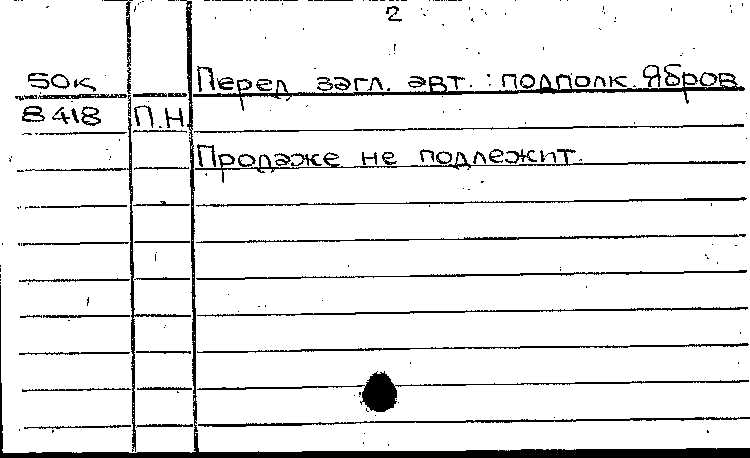 2
50к Перед загл. авт.: подполк. Ябров
8418 П.Н.
Продаже не подлежит.